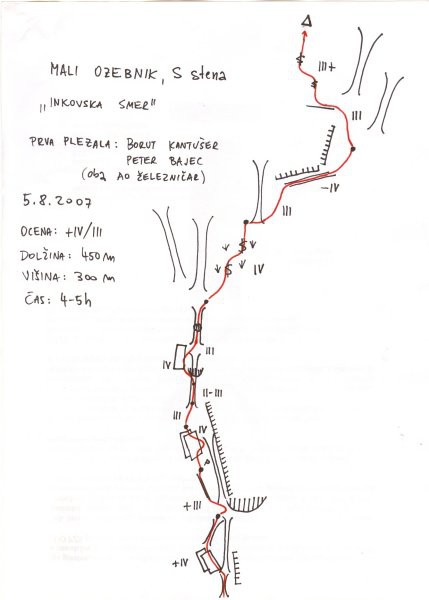 MALI OZEBNIK, S stena
„INKOVSKA SMER"
PRVA PLEZALA: BORUT KANTUŠER
PETER BAJEC
(oba AO ŽELEZNIČAR)
5.8.2007
OCENA: +IV/III
DOLŽINA: 450 m
VIŠINA: 300 m
ČAS: 4-5h
III+
III
-IV
III
IV
III
IV
II-III
III
IV
P
+III
+IV